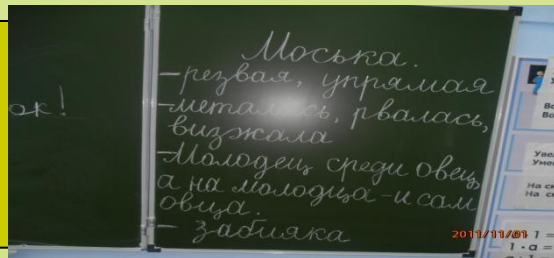 ок!
Моська.
- резвая, упрямая
- металась, рвалась,
визжала
- Молодец среди овец,
а на молодца - и сам
овца.
- Забияка
2011/11/01
На
На
1 =
1 · а =